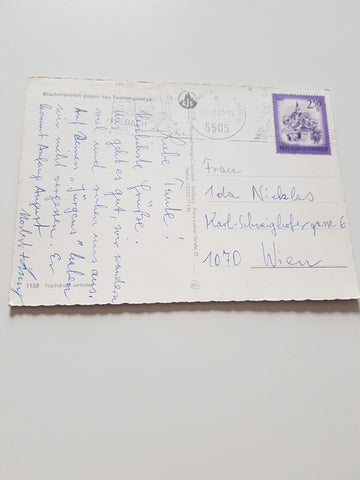 Bischofshofen gegen das Tennengebirge
Liebe Tante!
Herzlichste Grüße!
Uns geht es gut, wir wandern
viel und ruhen uns aus.
Auf Deinen "Jürgens" haben
wir nicht vergessen. Er
kommt Anfang August
1159 Nachdruck verboten
5505
2.50
REPUBLIK ÖSTERREICH
Frau
Ida Nicklas
Karl-Schweighofergasse 6
1070 Wien